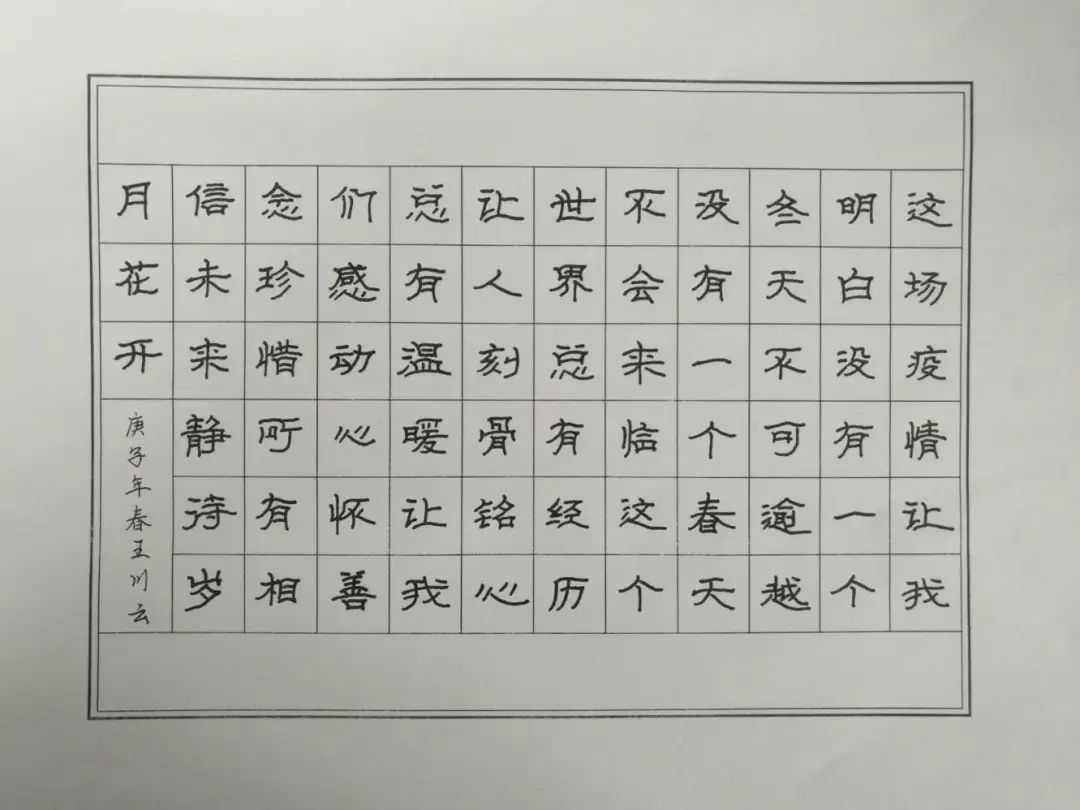 这场疫情让我
明白没有一个
冬天不可逾越
没有一个春天
不会来临这个
世界总有经历
让人刻骨铭心
总有温暖让我
们感动心怀善
念珍惜所有相
信未来静待岁
月花开
庚子年春王川云